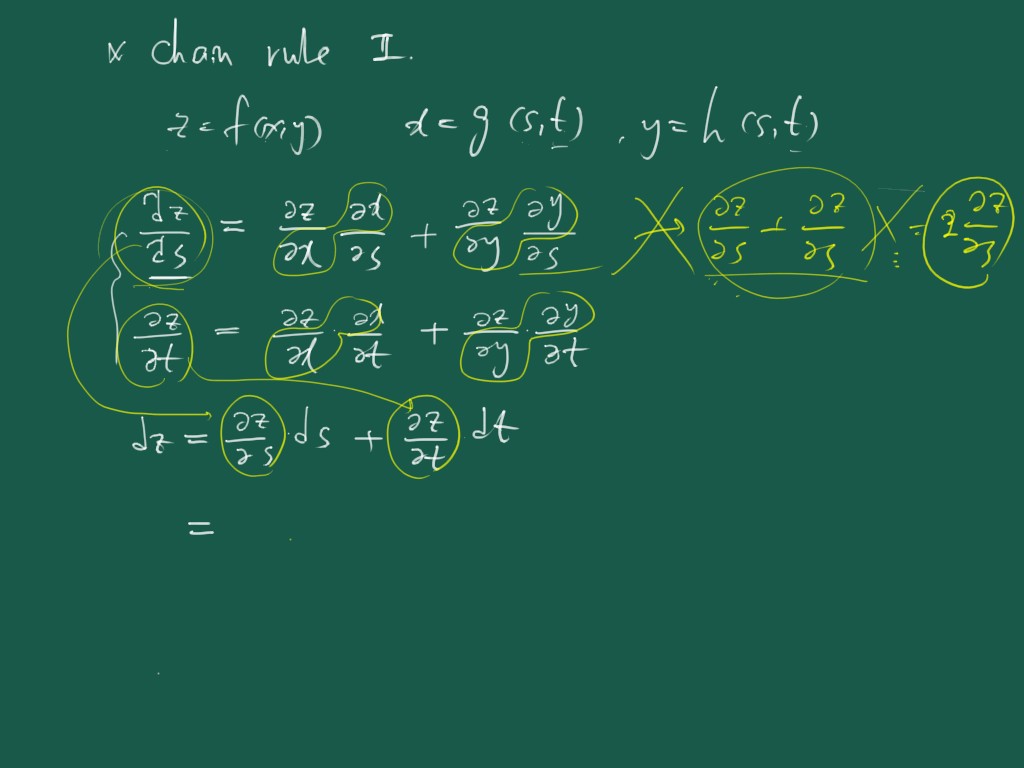 × chain rule I.
z = f(x,y) x = g(s,t) , y = h(s,t)
dz/ds = ∂z/∂x ∂x/∂s + ∂z/∂y ∂y/∂s → ∂z/∂s + ∂z/∂s = 2 ∂z/∂s
∂z/∂t = ∂z/∂x · ∂x/∂t + ∂z/∂y · ∂y/∂t
dz = ∂z/∂s · ds + ∂z/∂t dt
=